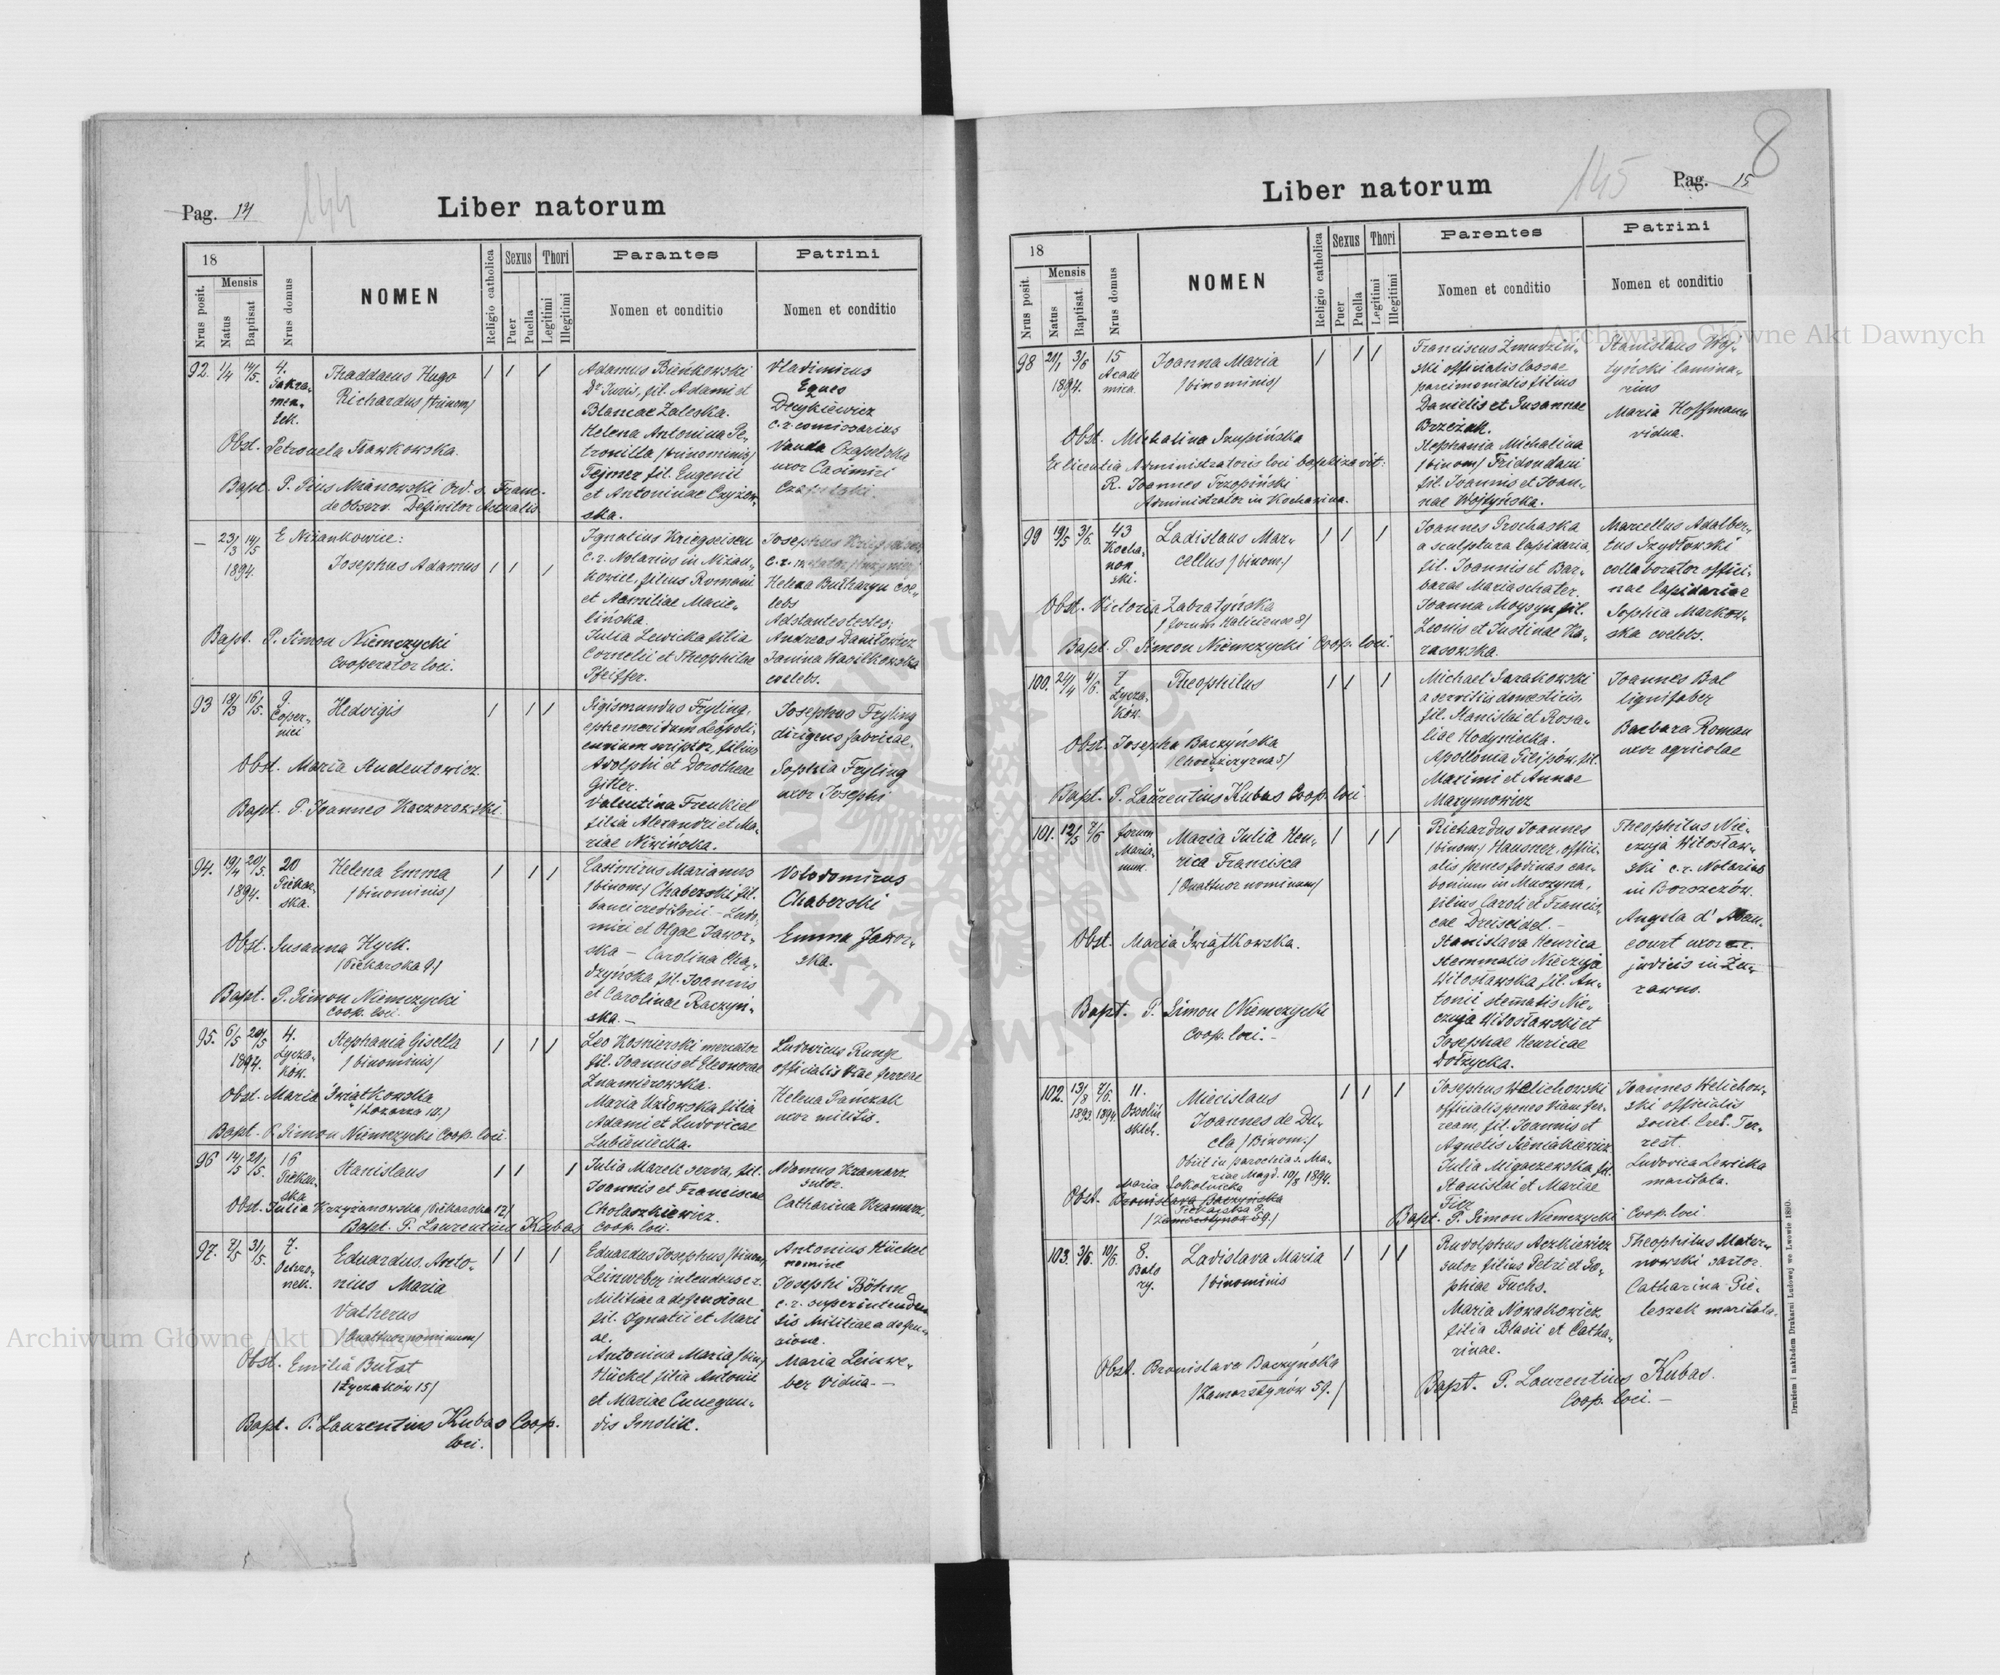 8
Pag. 14
144
Liber natorum
18
Nrus posit.
Mensis
Natus
Baptisat
Nrus domus
NOMEN
Religio catholica
Sexus
Puer
Puella
Thori
Legitimi
Illegitimi
Parantes
Nomen et conditio
Patrini
Nomen et conditio
92. 1/4 14/5. 4.
Sakra-
men-
tek.
Thaddaeus Hugo
Richardus /trinom/
Obst. Petronela Sławkowska.
Bapt. P. Pius Mianowski Ord. s. Franc.
de Observ. Definitor Actualis
Adamus Bieńkowski
Dr Juris, fil. Adami et
Blancae Zaleska.
Helena Antonina Pe-
tronilla /trinominis/
Tejmer fil. Eugenii
et Antoninae Czyżew-
ska.
Vladimirus
Eques
Decykiewicz
c. r. comissarius
Vanda Czapelska
uxor Casimiri
Czapelski.
— 23/3 14/5
1894.
E Niżankowice:
Josephus Adamus
Bapt. P. Simon Niemczycki
Cooperator loci.
Ignatius Kriegseisen
c. r. Notarius in Niżan-
kowice, filius Romani
et Aemiliae Macie-
lińska.
Julia Lewicka filia
Cornelii et Theophilae
Pfeiffer.
Josephus Kriegseisen
Helena Bucharyn coe-
lebs
Adstantes testes:
Andreas Daniłowicz
Janina Wasilkowska
coelebs.
93 18/3 15/5. 9.
Coper-
nici
Hedvigis
Obst. Maria Studentowicz.
Bapt. P. Joannes Kaczorowski.
Sigismundus Fryling,
ephemeridum Leopoli-
ensium scriptor, filius
Adolphi et Dorotheae
Gitler.
Valentina Frenkiel
filia Alexandri et Ma-
riae Niwińska.
Josephus Fryling
dirigens fabricae.
Sophia Fryling
uxor Josephi
94. 19/4 20/5.
1894.
20
Piekar-
ska.
Helena Emma
/binominis/
Obst. Susanna Hyck.
/Piekarska 9/
Bapt. P. Simon Niemczycki
coop. loci.
Casimirus Marianus
/binom/ Chaberski fil.
ska — Carolina Cha-
dzyńska fil. Joannis
et Carolinae Raczyń-
ska. —
Volodomirus
Chaberski
Emma Jawor-
ska.
95. 6/5 20/5
1894.
4.
Łycza-
ków.
Stephania Gisella
/binominis/
Obst. Maria Świątkowska
/Łazarza 10./
Bapt. P. Simon Niemczycki Coop. loci.
Leo Kosnierski mercator
fil. Joannis et Eleonorae
Znamirowska.
Maria Uzłowska filia
Adami et Ludovicae
Lubieniecka.
Ludovicus Runge
officialis viae ferreae
Helena Pańczak
uxor militis.
96 14/5 21/5. 16
Piekar-
ska
Stanislaus
Obst. Julia Krzyżanowska /Piekarska 12/
Bapt. P. Laurentius Kubas
coop. loci.
Julia Marek serva, fil.
Joannis et Franciscae
Cholaszkiewicz.
Adamus Kramarz
sutor.
Catharina Kramarz.
97. 7/5 31/5. 7.
Ochro-
nek.
Eduardus Anto-
nius Maria
Valherus
/Quattuor nominum/
Obst. Emilia Bułat
/Łyczaków 15/
Bapt. P. Laurentius Kubas Coop.
loci.
Eduardus Josephus /binom/
Leinweber intendens c. r.
Militiae a defensione
fil. Ignatii et Mari-
ae.
Antonina Maria /bin/
Hückel filia Antonii
et Mariae Cunegun-
dis Smolik.
Antonius Hückel
nomine
Josephi Böhm
c. r. superintenden-
tis Militiae a defen-
sione.
Maria Leinwe-
ber vidua. —
Pag. 15
145
Liber natorum
18
Nrus posit.
Mensis
Natus
Baptisat.
Nrus domus
NOMEN
Religio catholica
Sexus
Puer
Puella
Thori
Legitimi
Illegitimi
Parentes
Nomen et conditio
Patrini
Nomen et conditio
98 21/1 3/6
1894.
15
Acade
mica.
Joanna Maria
/binominis/
Obst. Michalina Szupińska
Ex licentia Administratoris loci baptizavit:
R. Joannes Trzopiński
Administrator in Kochawina.
Franciscus Żmudziń-
ski officialis cassae
parcimonialis filius
Danielis et Susannae
Brzeżak.
Stephania Michalina
/binom/ Fridondani
fil. Joannis et Joan-
nae Wojtyńska.
Stanislaus Woj-
tyński lamina-
rius
Maria Hoffmann
vidua.
99 19/5 3/6. 43
Kocha-
now
ski.
Ladislaus Mar-
cellus /binom/
Obst. Victoria Zabratyńska
/forum Haliciense 8/
Bapt. P. Simon Niemczycki Coop. loci.
Joannes Prochaska
a sculptura lapidaria,
fil. Joannis et Bar-
barae Mariaschater.
Joanna Moysyn fil.
Leonis et Justinae Ka-
rasowska.
Marcellus Adalber-
tus Szydłowski
collaborator offici-
nae lapidariae
Sophia Markow-
ska coelebs.
100. 24/4 4/6. 7
Łycza-
ków.
Theophilus
Obst. Josepha Baczyńska
Bapt. P. Laurentius Kubas Coop. loci
Michael Sarakowski
a servitiis domesticis,
fil. Stanislai et Rosa-
liae Hodyniecka.
Apollonia Filipów, fil.
Maximi et Annae
Maxymowicz
Joannes Bal
lignifaber
Barbara Roman
uxor agricolae
101. 12/5 7/6 forum
Maria-
num.
Maria Julia Hen-
rica Francisca
/Quattuor nominum/
Obst. Maria Świątkowska.
Bapt. P. Simon Niemczycki
coop. loci. —
Richardus Joannes
/binom/ Hausner, offici-
alis penes fodinas car-
bonium in Muszyna,
filius Caroli et Francis-
cae Dreiseidel. —
Stanislava Henrica
stemmatis Nieczuja
Witosławska fil. An-
tonii stematis Nie-
czuja Witosławski et
Josephae Henricae
Dołzycka.
Theophilus Nie-
czuja Witosław-
ski c. r. Notarius
in Borszczów.
Angela d' Aban-
court uxor c. r.
judicis in Żu-
rawno.
102. 13/8 7/6.
1893. 1894.
11.
Ossoliń
skich.
Miecislaus
Joannes de Du-
cla /Binom./
Obiit in parochia s. Ma-
riae Magd. 10/8 1894.
Maria Sokolnicka
Obst. Bronislava Baczyńska
Piekarska 3.
/Zamarstynów 59./
Josephus Wielichowski
officialis penes viam fer-
ream, fil. Joannis et
Agnetis Sieniakiewicz
Julia Migaczewska fil.
Stanislai et Mariae
Filz
Bapt. P. Simon Niemczycki Coop. loci
Joannes Helichow-
ski officialis
societ. Cred. Ter-
rest.
Ludovica Lewicka
maritata.
103. 3/6. 10/6 8.
Bato
ry.
Ladislava Maria
/binominis
Obst. Bronislava Baczyńska
/Zamarstynów 59./
Rudolphus Aczkiewicz
sutor filius Petri et So-
phiae Fuchs.
Maria Nowakowicz
filia Blasii et Catha-
rinae.
Bapt. P. Laurentius Kubas.
Coop. loci. —
Theophilus Mater-
nowski sartor.
Catharina Pie-
leszak maritata.
Drukiem i nakładem Drukarni Ludowej we Lwowie 1890.
Archiwum Główne Akt Dawnych
Archiwum Główne Akt Dawnych
ARCHIWUM GŁÓWNE AKT DAWNYCH